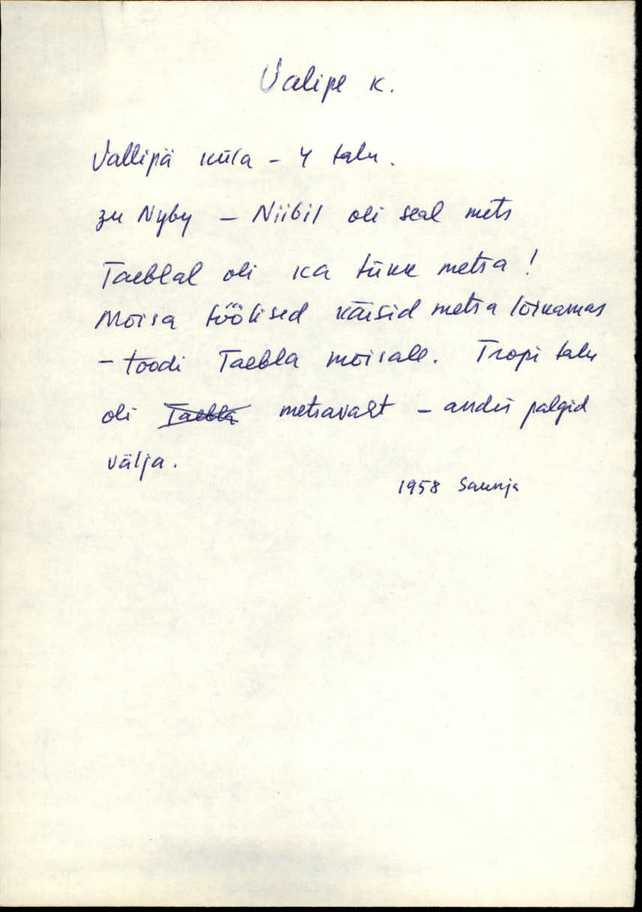 Valipe k.
Vallipä küla - 4 talu.
zu Nyby - Niibil oli seal mets
Taeblal oli ka tükk metsa!
Mõisa töölised käisid metsa lõikamas
- toodi Taebla mõisale. Tropi talu
oli Taebla metsavaht - andis palgid
välja.
1958 Saunja